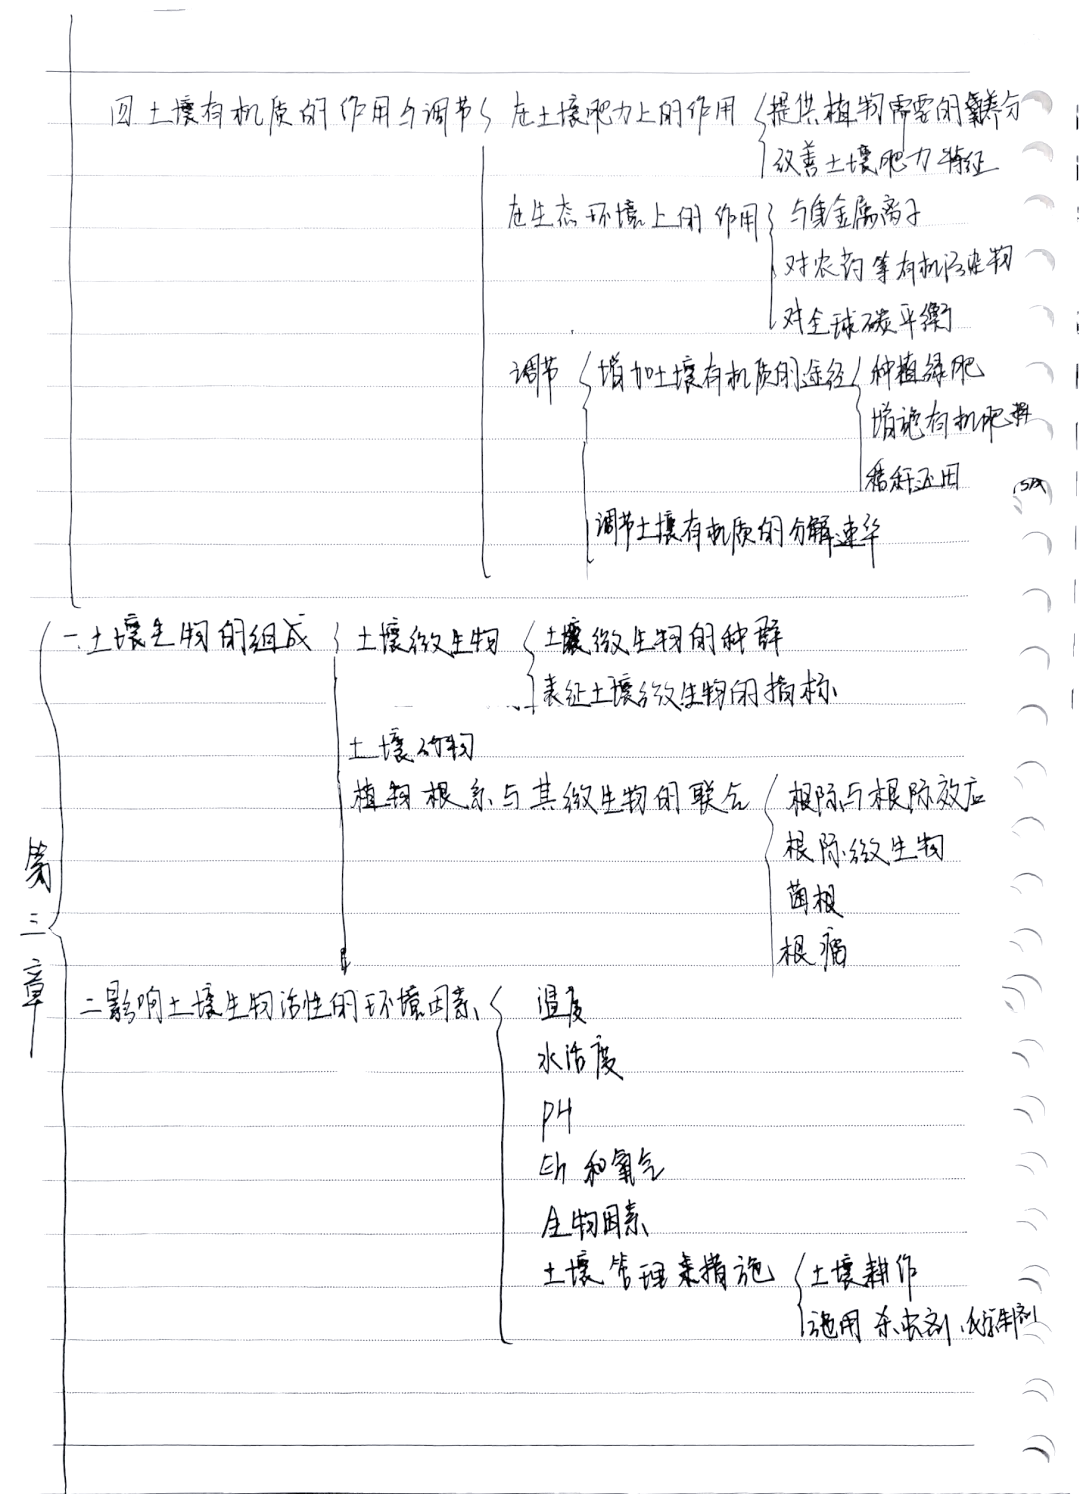 四 土壤有机质的作用与调节 在土壤肥力上的作用 提供植物需要的养分
改善土壤肥力特征
在生态环境上的作用 与重金属离子
对农药等有机污染物
对全球碳平衡
调节 增加土壤有机质的途径 种植绿肥
增施有机肥料
秸秆还田
调节土壤有机质的分解速率
一.土壤生物的组成 土壤微生物 土壤微生物的种群
表征土壤微生物的指标
土壤动物
植物根系与其微生物的联合 根际与根际效应
根际微生物
菌根
根瘤
第三章
二影响土壤生物活性的环境因素 温度
水活度
PH
Eh和氧气
生物因素
土壤管理措施 土壤耕作
施用杀虫剂、制剂